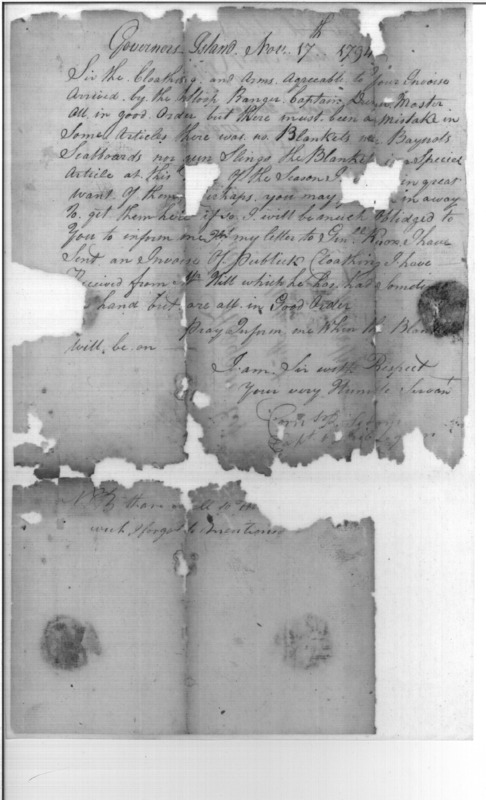 Governors Island Nov. 17th 1794
Sir the Cloathing and Arms Agreeable to Your Invoice
Arrived by the Sloop Ranger Captain Master
All in good Order but there must been a mistake in
Some Articles there was no Blankets nor Bayonets
Scabboards nor gun Slings the Blankets is a Species
Article at this of the Season I in great
want of them perhaps you may in away
to get them here if so I will be much Obledged to
You to inform me my letter to Genll Knox I have
Sent an Invoice Of Publick Cloathing I have
Received from Mr Hill which he has had
hand but are all in Good Order
Pray Inform me When the Blankets
will be on
I am Sir with Respect
Your very Humble Servant
NB than
week I forgot to mention